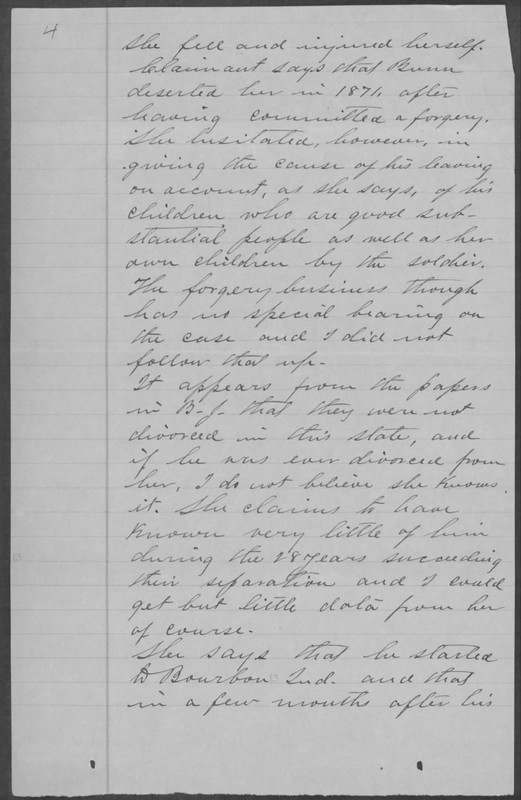 4
She fell and injured herself.
Claimant says that Bunn
deserted her in 1871, after
having committed a forgery.
She hesitated, however, in
giving the cause of his leaving
on account, as she says, of his
children who are good sub-
stantial people as well as her
own children by the soldier.
The forgery business though
has no special bearing on
the case and I did not
follow that up.
It appears from the papers
in B-J. that they were not
divorced in this state, and
if he was ever divorced from
her, I do not believe she knows
it. She claims to have
known very little of him
during the 28 years succeeding
their separation and I could
get but little data from her
of course.
She says that he started
to Bourbon Ind. and that
in a few months after his